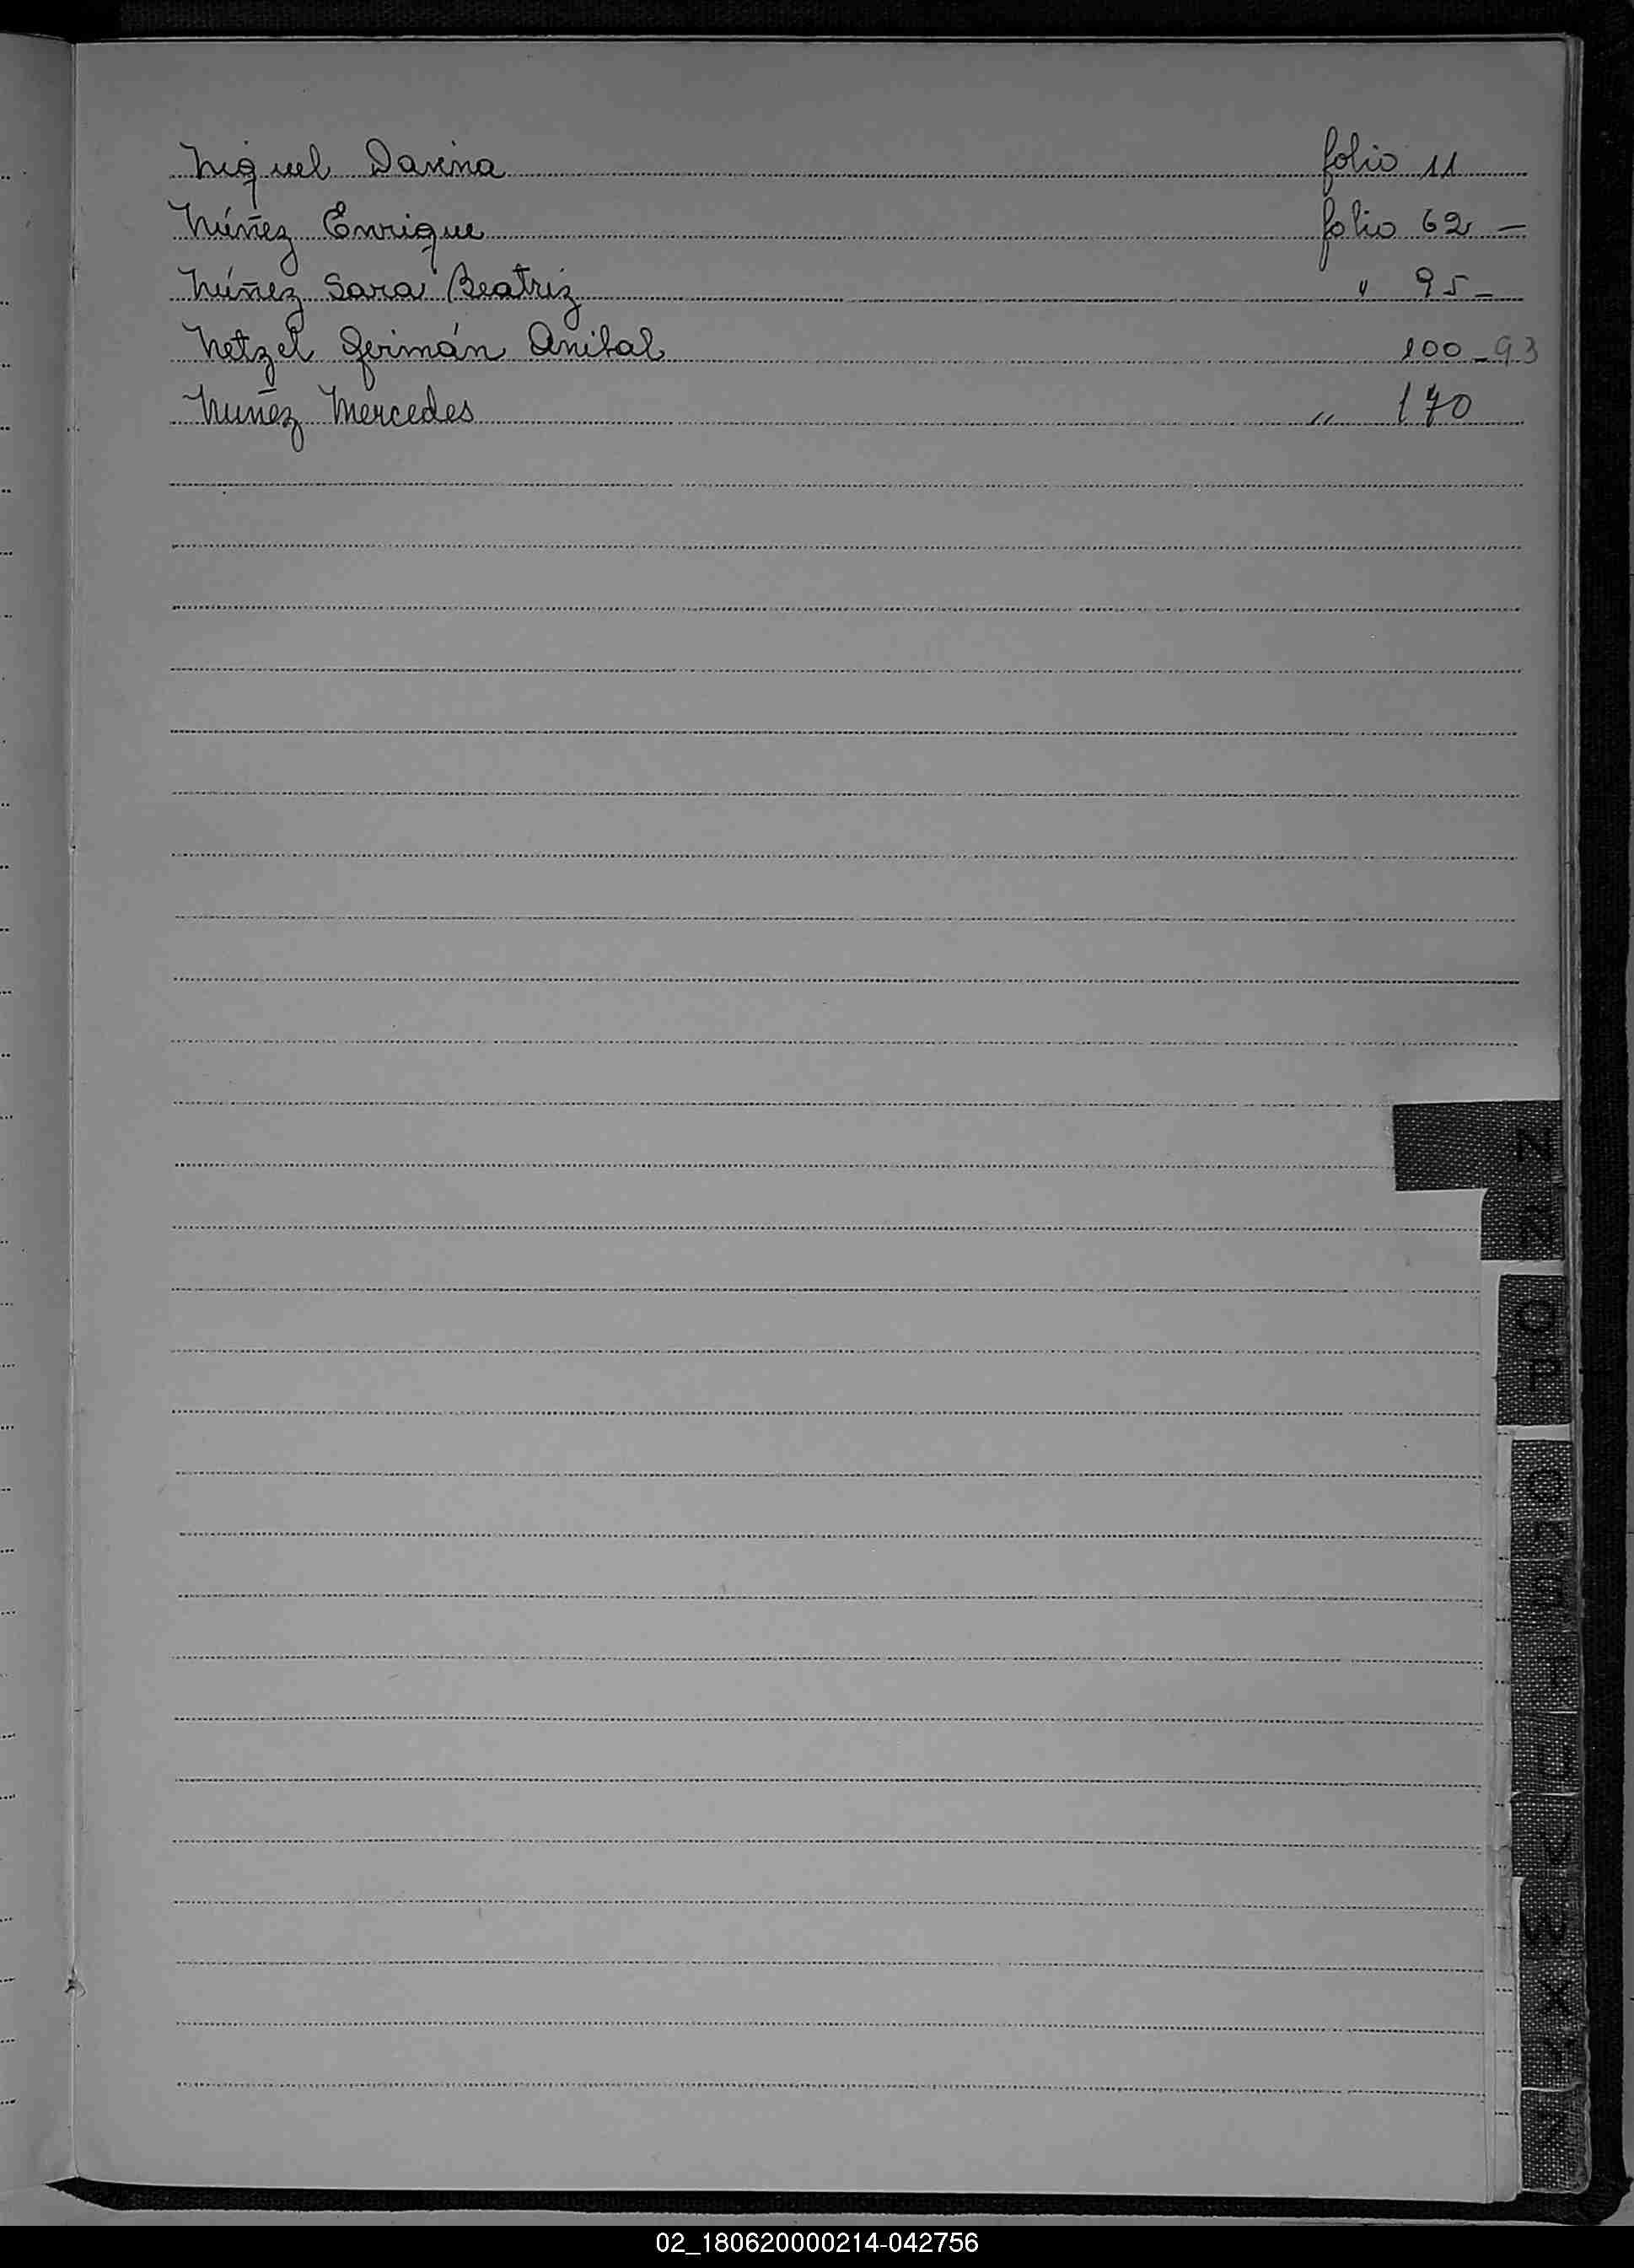 Niquel Davina folio 11
Núñez Enrique folio 62 —
Núñez Sara Beatriz " 95 -
Netzel Germán Anibal 100 - 93
Nuñez Mercedes " 170
N
Ñ
O
P
Q
R
S
T
U
V
W
X
Y
Z
02_180620000214-042756